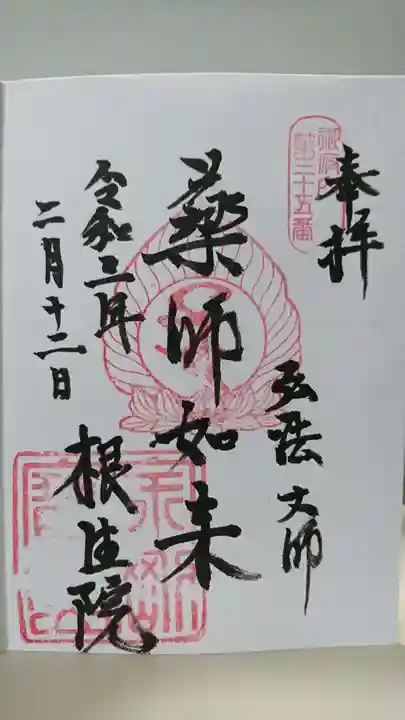 奉拝
第三十五番
弘法大師
薬師如来
令和三年
二月十二日
根生院